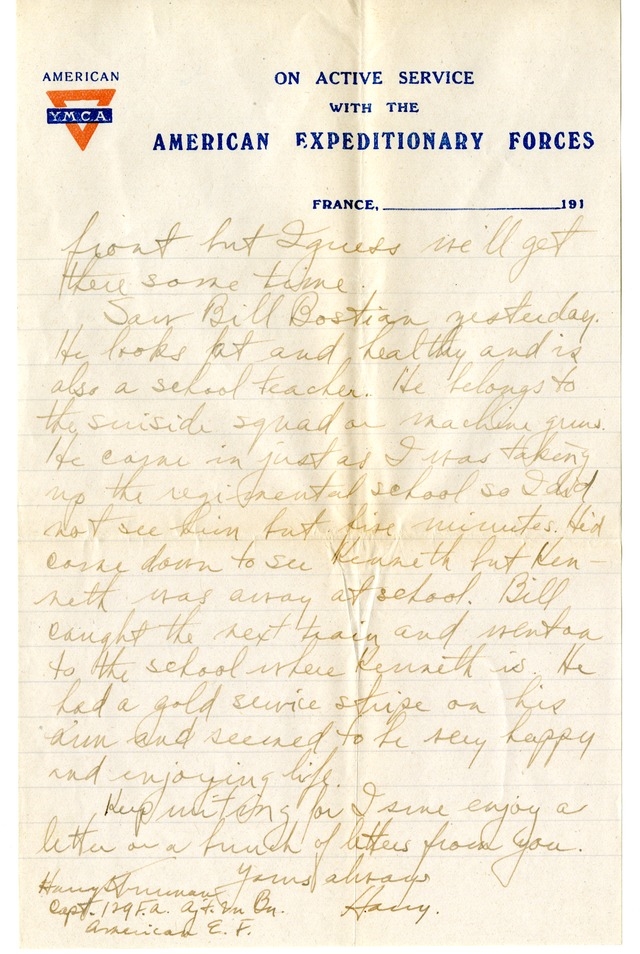 AMERICAN
Y.M.C.A.
ON ACTIVE SERVICE
WITH THE
AMERICAN EXPEDITIONARY FORCES
FRANCE, 191
front but I guess we'll get
there some time.
Saw Bill Bostian yesterday.
He looks fat and healthy and is
also a school teacher. He belongs to
the suiside squad or machine guns.
He came in just as I was taking
up the regimental school so I did
not see him but five minutes. He'd
come down to see Kenneth but Ken-
neth was away at school. Bill
caught the next train and went on
to the school where Kenneth is. He
had a gold service stripe on his
arm and seemed to be very happy
and enjoying life.
Keep writing for I sure enjoy a
letter or a bunch of letters from you.
Yours always
Harry.
Harry S Truman
Capt. 129 F.A. Ajt. 2n Bn.
American E. F.